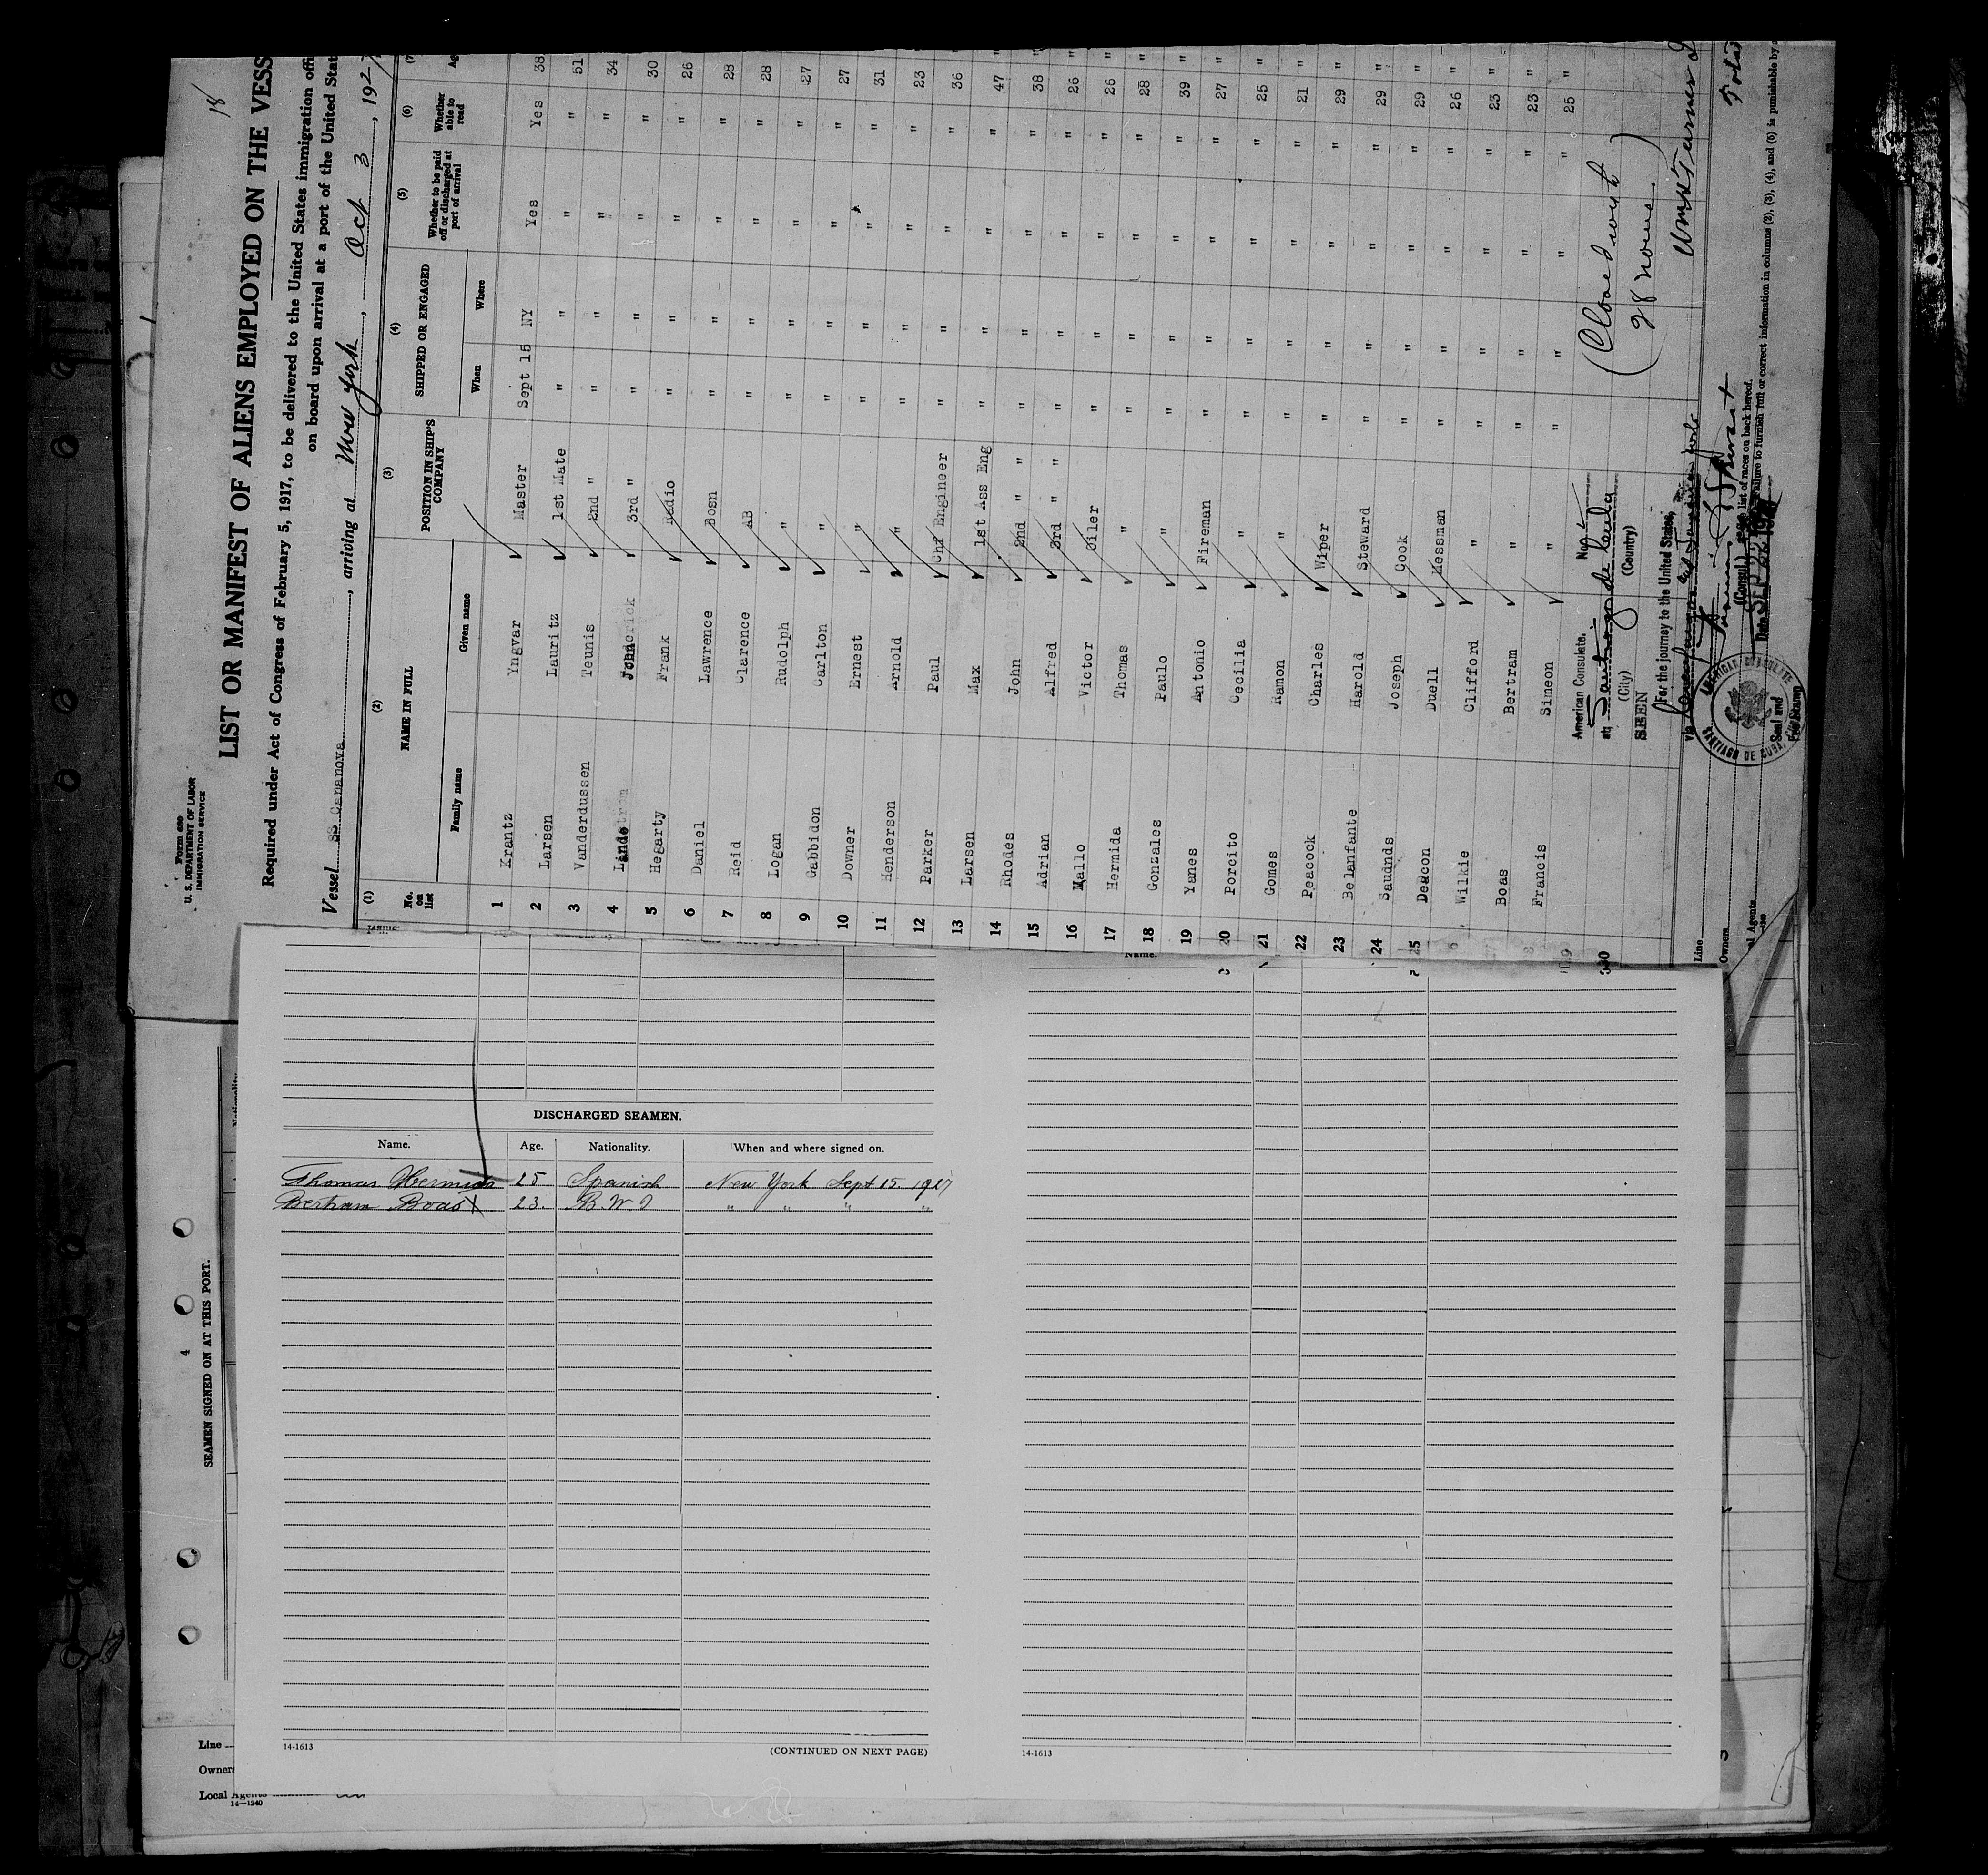 18
Form 680
U. S. DEPARTMENT OF LABOR
IMMIGRATION SERVICE
LIST OR MANIFEST OF ALIENS EMPLOYED ON THE VESS
Required under Act of Congress of February 5, 1917, to be delivered to the United States immigration offi
on board upon arrival at a port of the United Stat
Vessel SS Cananova, arriving at New York, Oct 3, 192
(1) (2) (3) (4) (5) (6) (7)
No. on list NAME IN FULL POSITION IN SHIP'S COMPANY SHIPPED OR ENGAGED Whether to be paid off or discharged at port of arrival Whether able to read Ag
Family name Given name When Where
1 Krantz Yngvar Master Sept 15 NY Yes Yes 38
2 Larsen Lauritz 1st Mate " " " " 51
3 Vanderdussen Teunis 2nd " " " " " 34
4 John 3rd " " " " " 30
5 Hegarty Frank Radio " " " " 26
6 Daniel Lawrence Bosn " " " " 28
7 Reid Clarence AB " " " " 28
8 Logan Rudolph " " " " " 27
9 Gabbidon Carlton " " " " " 27
10 Downer Ernest " " " " " 31
11 Henderson Arnold " " " " " 23
12 Parker Paul Chf Engineer " " " " 36
13 Larsen Max 1st Ass Eng " " " " 47
14 Rhodes John 2nd " " " " " " 38
15 Adrian Alfred 3rd " " " " " " 26
16 Mallo Victor Oiler " " " " 26
17 Hermida Thomas " " " " " 28
18 Gonzales Paulo " " " " " 39
19 Yanes Antonio Fireman " " " " 27
20 Porcito Cecilia " " " " " 25
21 Gomes Ramon " " " " " 21
22 Peacock Charles Wiper " " " " 29
23 Belanfante Harold Steward " " " " 29
24 Saudnds Joseph Cook " " " " 29
25 Deacon Duell Messman " " " " 26
Wilkie Clifford " " " " " 23
Boas Bertram " " " " " 23
Francis Simeon " " " " " 25
30
(Closed with
28 names)
American Consulate, No.
at, Santiago de Cuba
(City) (Country)
SEEN
For the journey to the United States,
via
(Consul)
Date SEP 22 1927
AMERICAN CONSULATE
SANTIAGO DE CUBA,
Seal and
Fee Stamp
list of races on back hereof.
ailure to furnish full or correct information in columns (2), (3), (4), and (5) is punishable by
Line
Owners
al Agents
Name.
DISCHARGED SEAMEN.
Name. Age. Nationality. When and where signed on.
Thomas Hermida 25 Spanish New York Sept 15 1927
Bertram Boas X 23. B. W. I " " " "
14-1613 (CONTINUED ON NEXT PAGE)
14-1613
Nationality.
4
SEAMEN SIGNED ON AT THIS PORT.
Line
Owners
Local Agents
14-1240